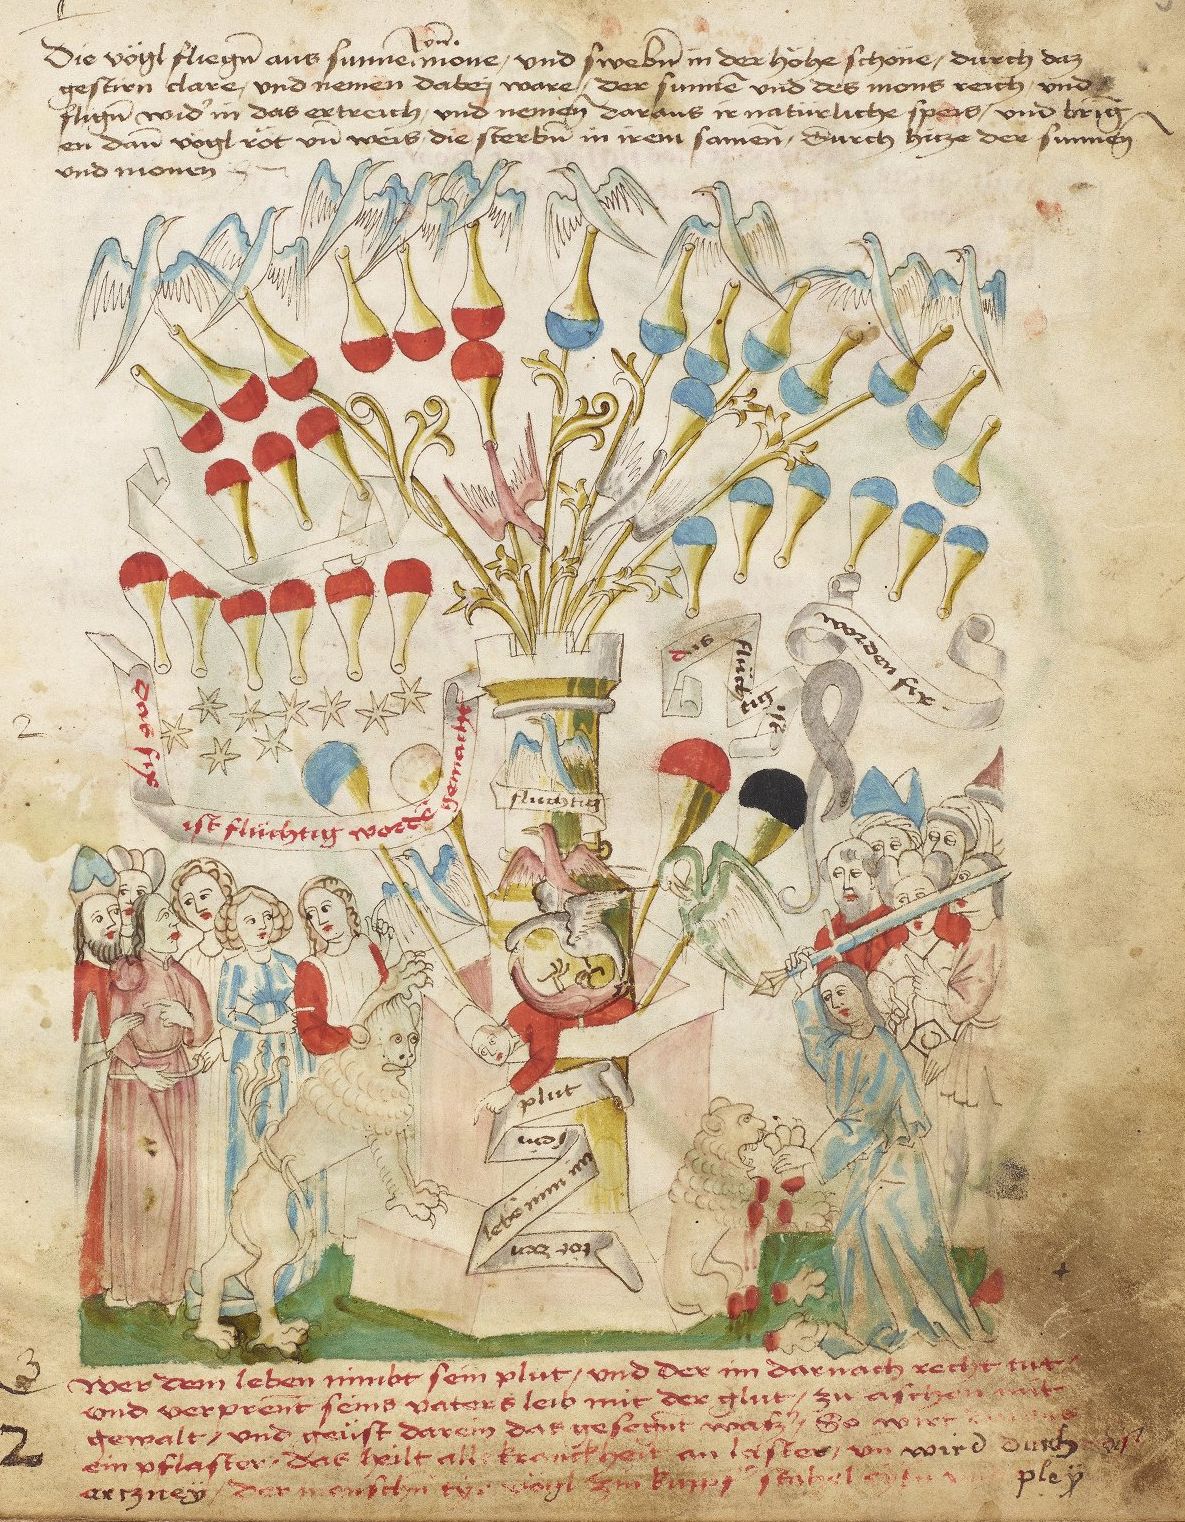 vn̄.
Die vögl fliegn̄ aus sunne, mone, und swebn̄ in der höhe schöne, durch daz
gestirn clare, und nemen dabej ware, der sunne und des mons reich, und
flign̄ wid' in das ertreich, und nemen daraus ir natürliche speis, und bring
en dan̄ vögl röt vn̄ weis, die sterbn̄ in irem samen, durch hitze der sunnen
und monen
2
das fix
ist flüchtig worde gemacht
das
flüchtig
ist
worden fix
fluchtig
plut
sein
lebē nim im
3
wer dem leben nimbt sein plut, und der im darnach recht tut,
und verprent seins vaters leib mit der glut, zu aschen mit
gewalt, und geust darein das gesernt
ein pflaster, das heilt alle kranckheit an laster, vn wird durch
arczney, der menschn vögl
pley
2